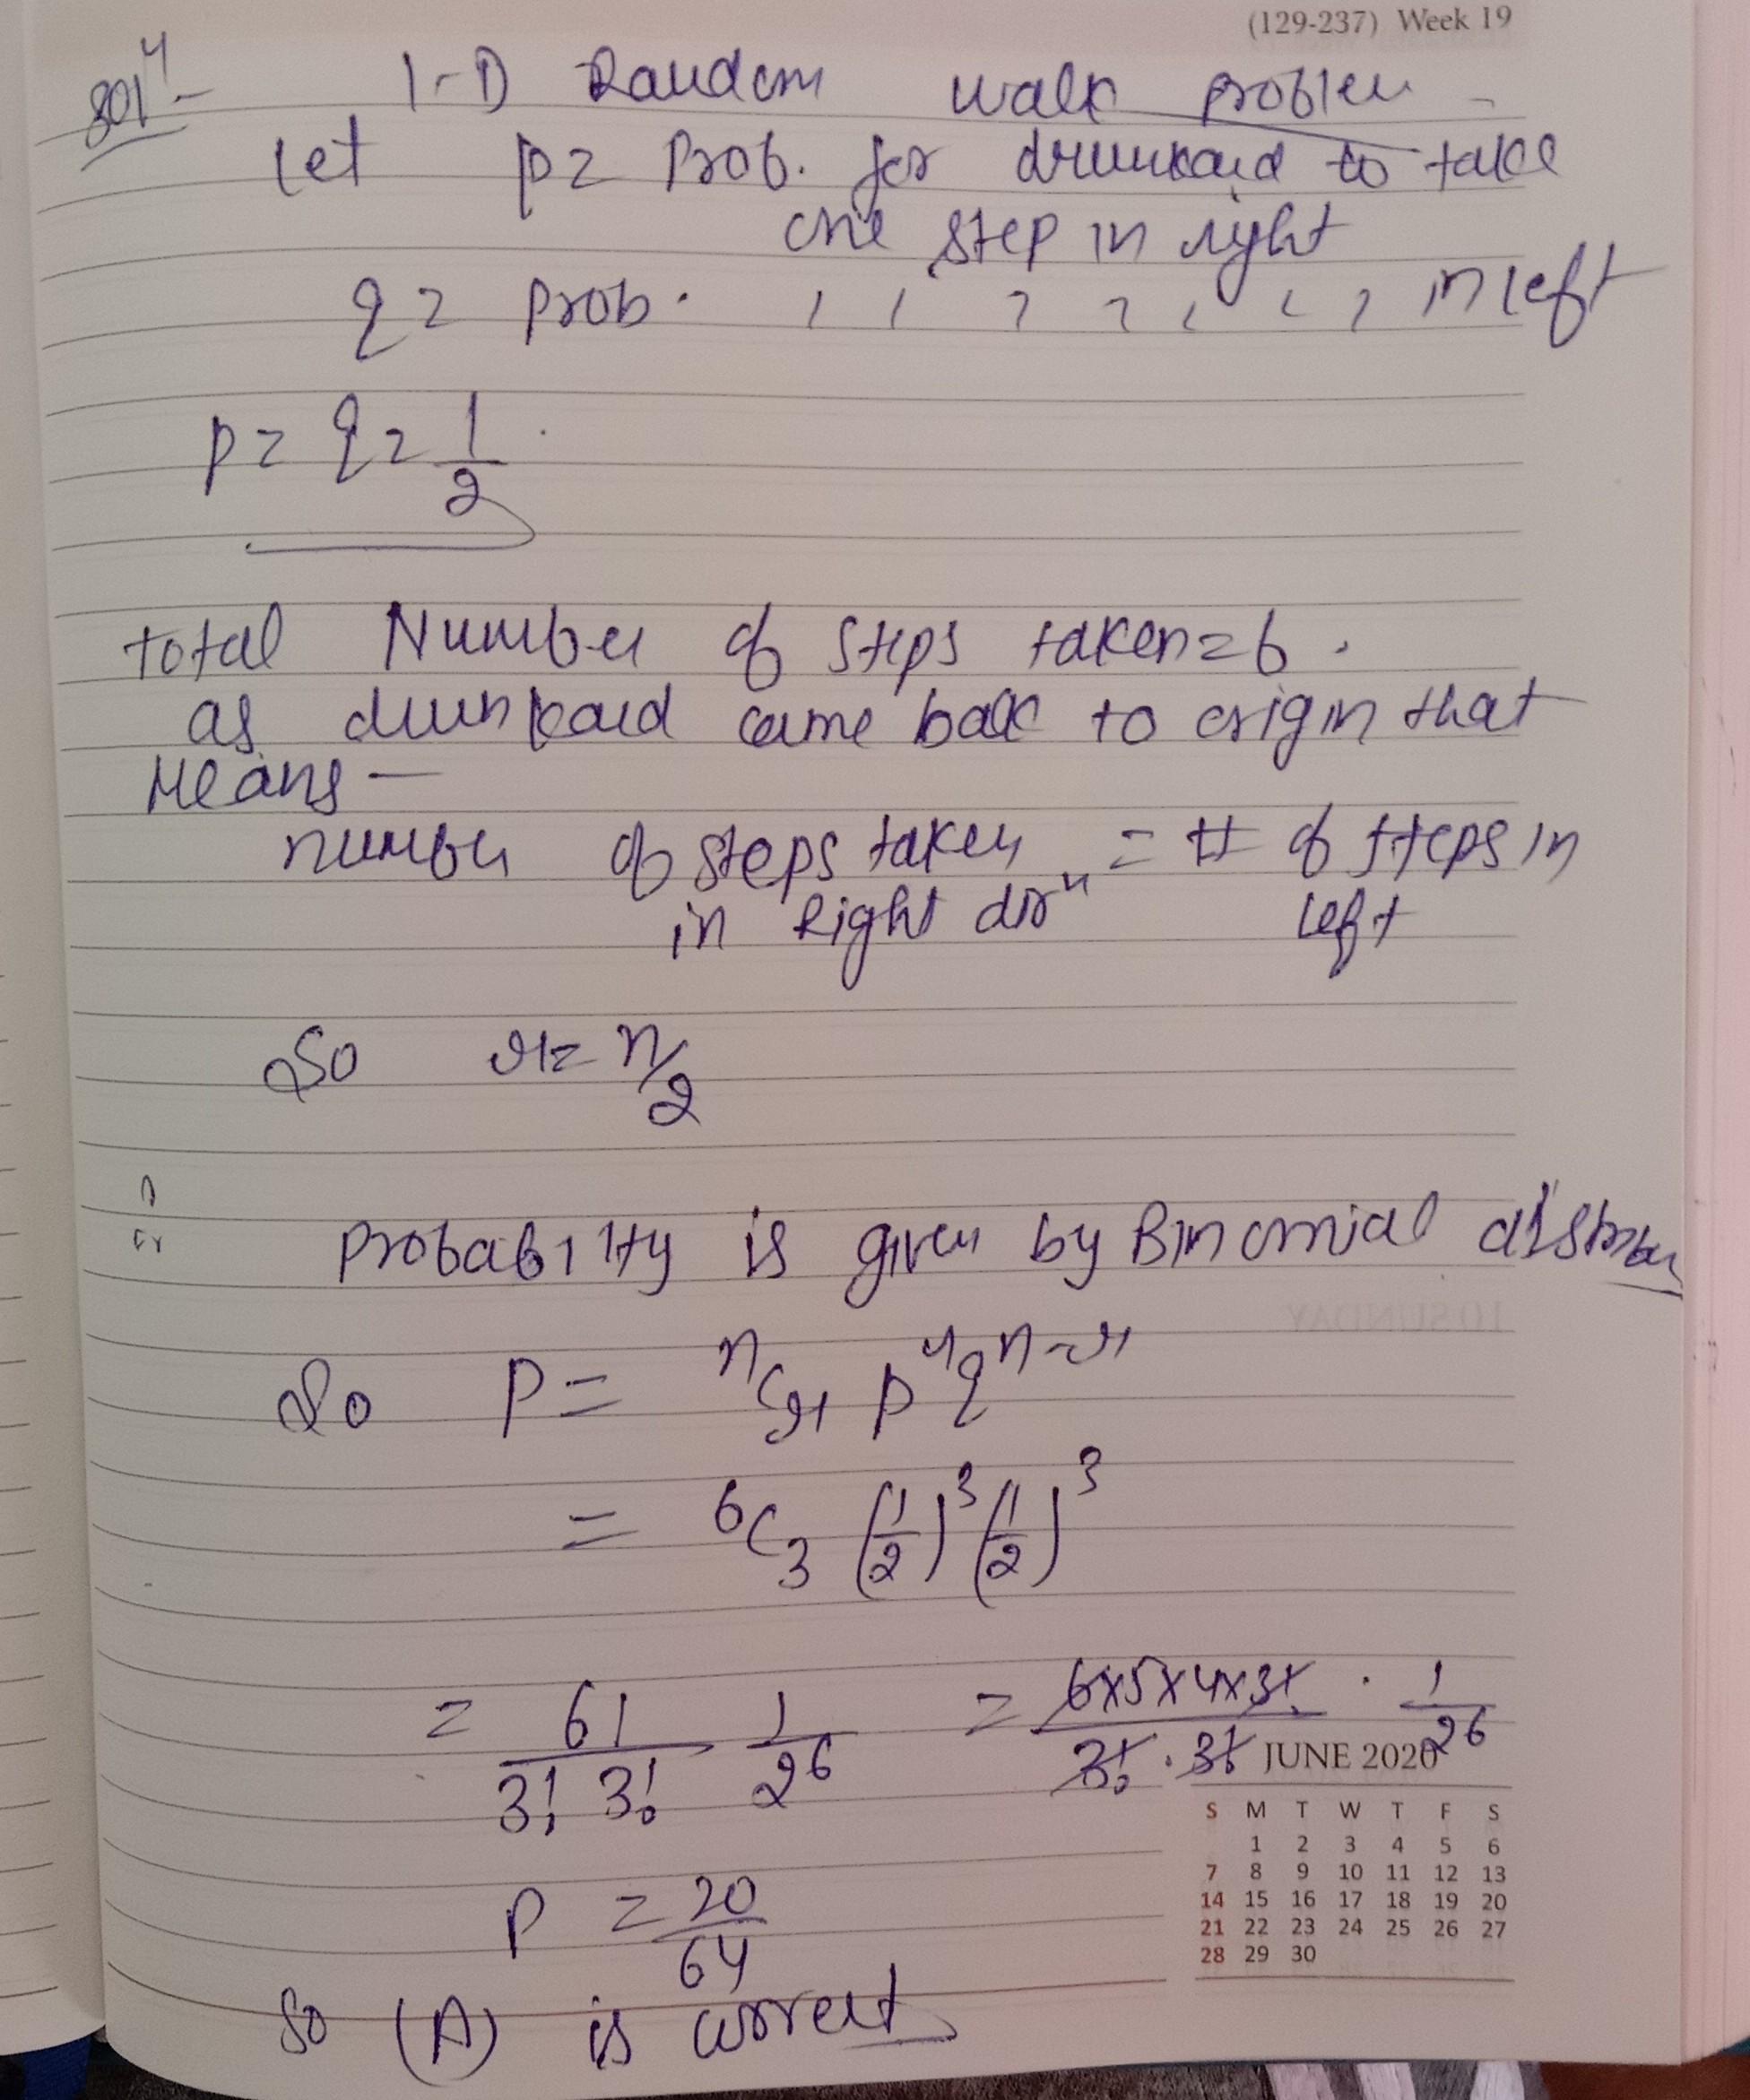 (129-237) Week 19
Solⁿ- 1-D Random walk problem -
Let p = Prob. for drunkard to take
one step in right
q = prob. , , , , , , , in left
p = q = 1/2
total Number of steps taken = 6.
as drunkard came back to origin that
Means —
number of steps taken = # of steps in
in Right dirⁿ left
So r = n/2
∴
Probability is given by Binomial distribu
10 SUNDAY
So P = ⁿCᵣ pʳ qⁿ⁻ʳ
= ⁶C₃ (1/2)³ (1/2)³
= 6!/(3! 3!) 1/2⁶ = (6x5x4x3!)/(3! . 3!) . 1/2⁶
JUNE 2020
S M T W T F S
1 2 3 4 5 6
7 8 9 10 11 12 13
14 15 16 17 18 19 20
21 22 23 24 25 26 27
28 29 30
P = 20/64
So (A) is correct